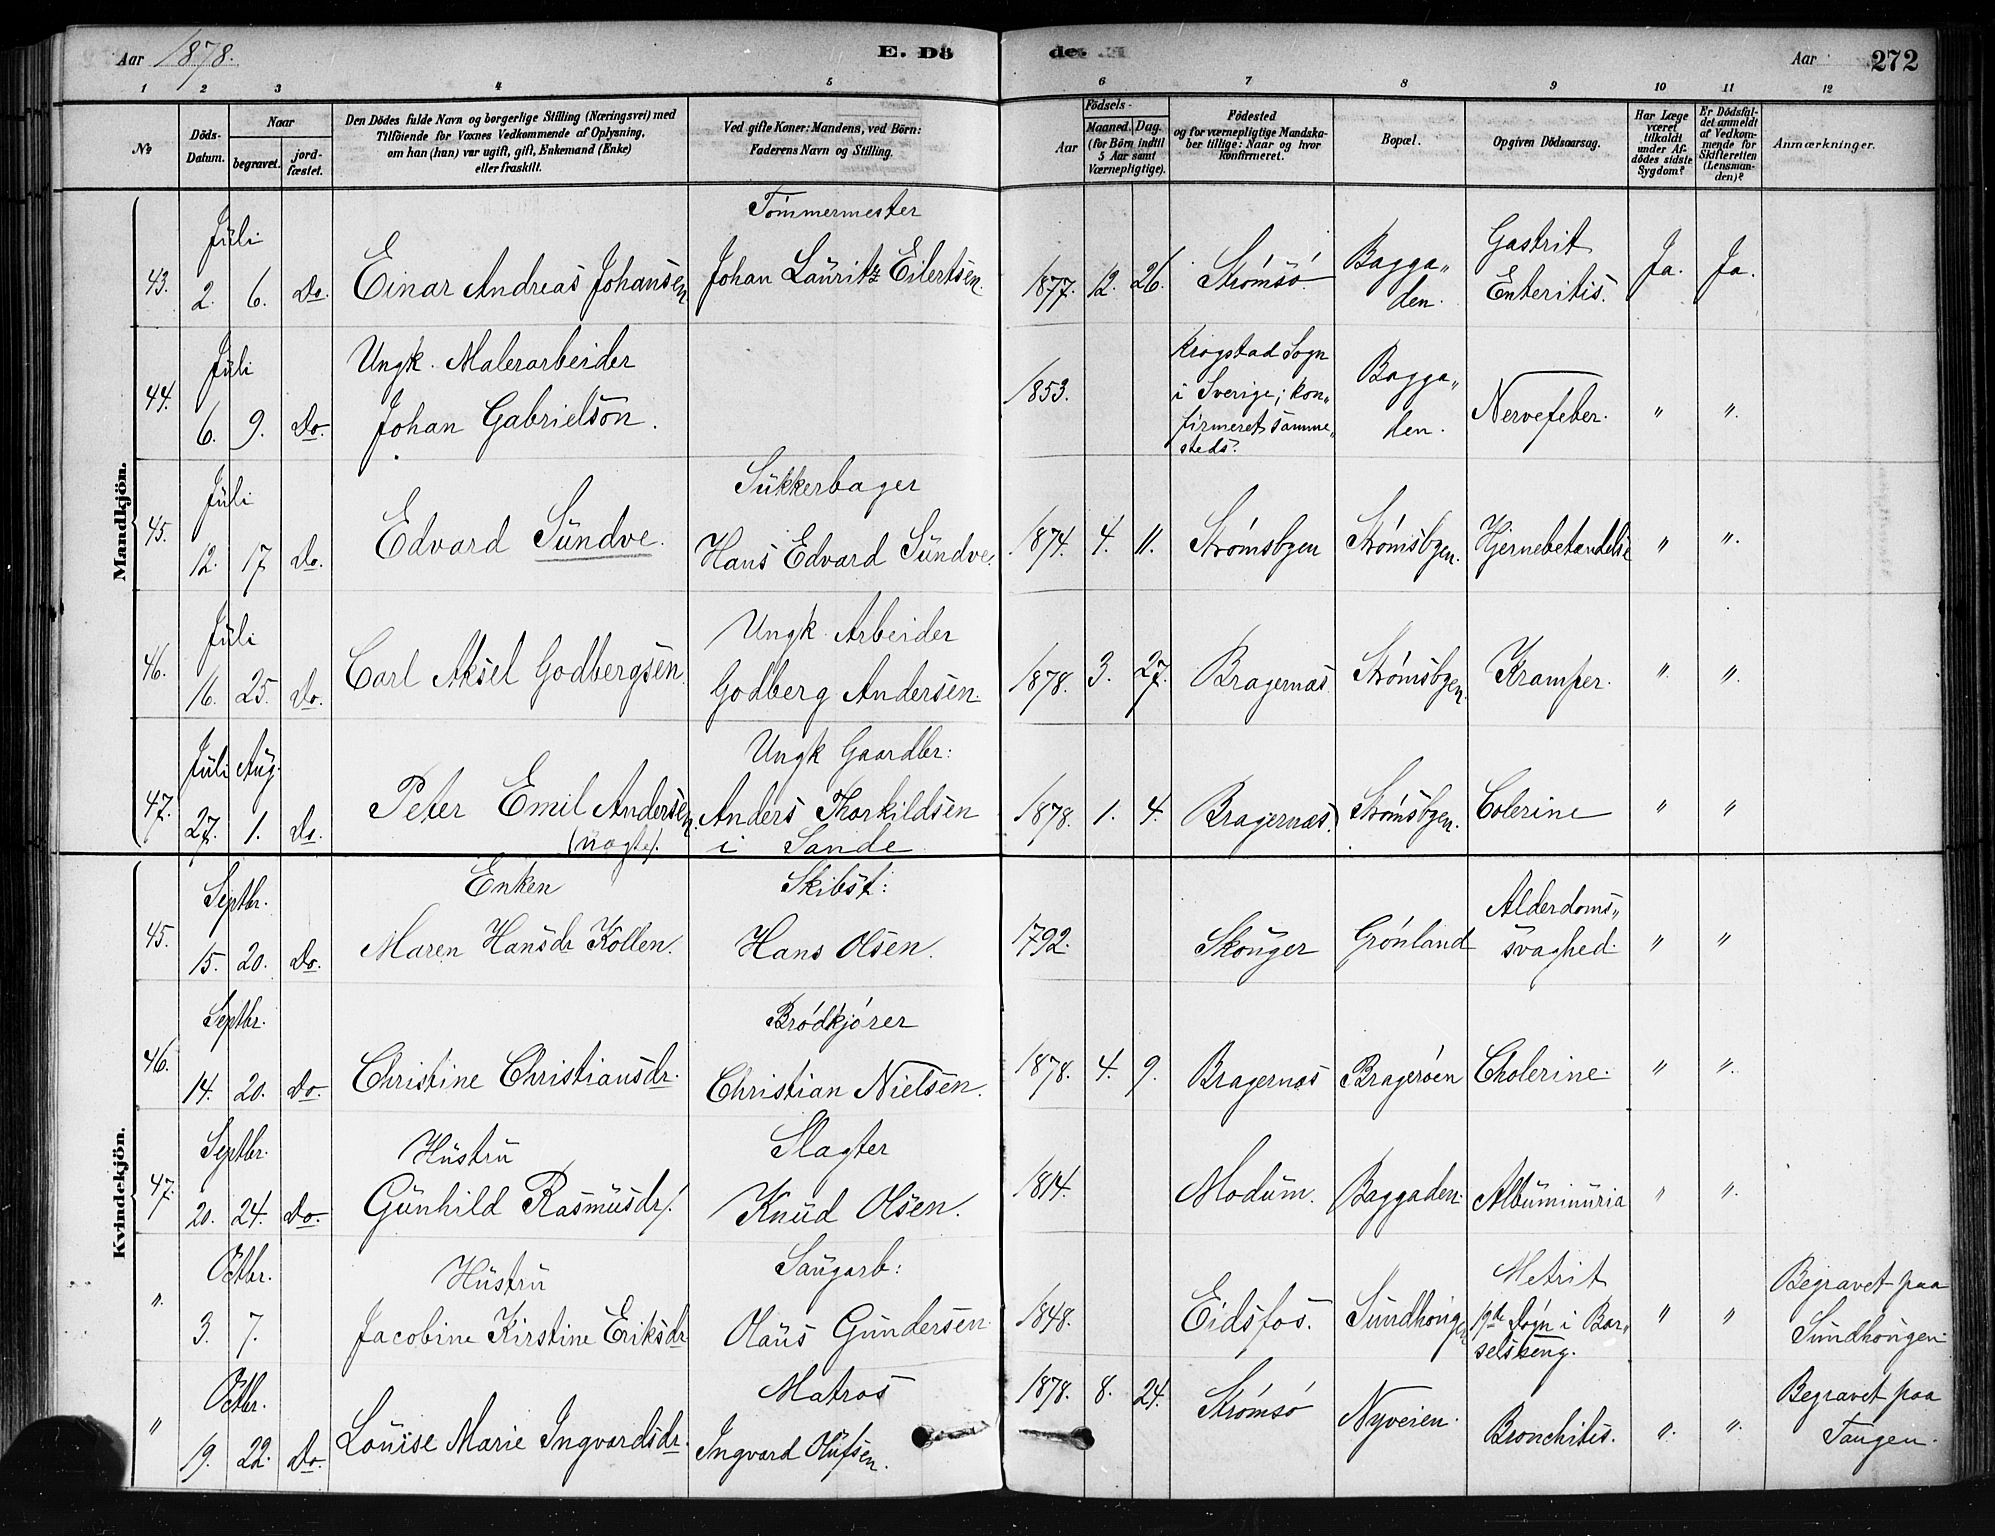 Aar 1878.
E. Dö
de.
Aar
272
1 2 3 4 5 6 7 8 9 10 11 12
No
Döds-Datum.
Naar
begravet.
jord-fæstet.
Den Dödes fulde Navn og borgerlige Stilling (Næringsvei) med
Tilföiende for Voxnes Vedkommende af Oplysning,
om han (hun) var ugift, gift, Enkemand (Enke)
eller fraskilt.
Ved gifte Koner: Mandens, ved Börn:
Faderens Navn og Stilling.
Födsels-
Aar
Maaned. Dag.
(for Börn indtil
5 Aar samt
Værnepligtige).
Födested
og for værnepligtige Mandska-
ber tillige: Naar og hvor
konfirmeret.
Bopæl.
Opgiven Dödsaarsag.
Har Læge
været
tilkaldt
under Af-
dödes sidste
Sygdom?
Er Dödsfal-
det anmeldt
af Vedkom-
mende for
Skifteretten
(Lensman-
den)?
Anmærkninger.
Mandkjön.
Juli
Tömmermester
43. 2. 6. Do. Einar Andreas Johansen Johan Lauritz Eilertsen. 1877. 12. 26. Strømsø. Bagga„
den. Gastrit
Enteritis. Ja. Ja.
Juli
Ungk. Malerarbeider
44. 6. 9. Do. Johan Gabrielson. 1853. Krogstad Sogn
i Sverige; kon„
firmeret samme„
steds. Bagga„
den. Nervefeber. " ".
Juli
Sukkerbager
45. 12. 17 Do. Edvard Sundve. Hans Edvard Sundve. 1874. 4. 11. Strømsbyen Strømsbyen. Hjernebetændelse " ".
Juli
Ungk. Arbeider
46. 16. 25. Do. Carl Aksel Godbergsen. Godberg Andersen. 1878. 3. 27. Bragernæs Strømsbyen. Kramper. " ".
Juli Aug.
Ungk Gaardbr:
47. 27. 1. Do. Peter Emil Andersen.
(uægte). Anders Thorkildsen
i Sande 1878. 1. 4. Bragernæs. Strømsbyen. Colerine " "
Kvindekjön.
Septbr.
Enken
Skibst:
45. 15. 20. Do. Maren Hansdr Kollen. Hans Olsen. 1792. Skouger Grønland Alderdoms„
svaghed. " "
Septbr.
Brødkjører
46. 14. 20. Do Christine Christiansdr. Christian Nielsen. 1878. 4. 9. Bragernæs Bragerøen Cholerine. " ".
Septbr.
Hustru
Slagter
47. 20. 24. Do. Gunhild Rasmusdr. Knud Olsen. 1814. Modum. Baggaden. Albuminuria " ".
Octbr.
Hustru
Saugarb:
". 3. 7. Jacobine Kirstine Eriksdr Olaus Gundersen. 1848. Eidsfos. Sundhougen Metrit
19de Døgn i Bar„
selseng. " " Begravet paa
Sundhougen.
Octbr.
Matros
" 19. 22. Do. Louise Marie Ingvardsdr. Ingvard Olufsen. 1878. 8. 24. Strømsø Nyveien. Bronchitis. ". ". Begravet paa
Tangen.